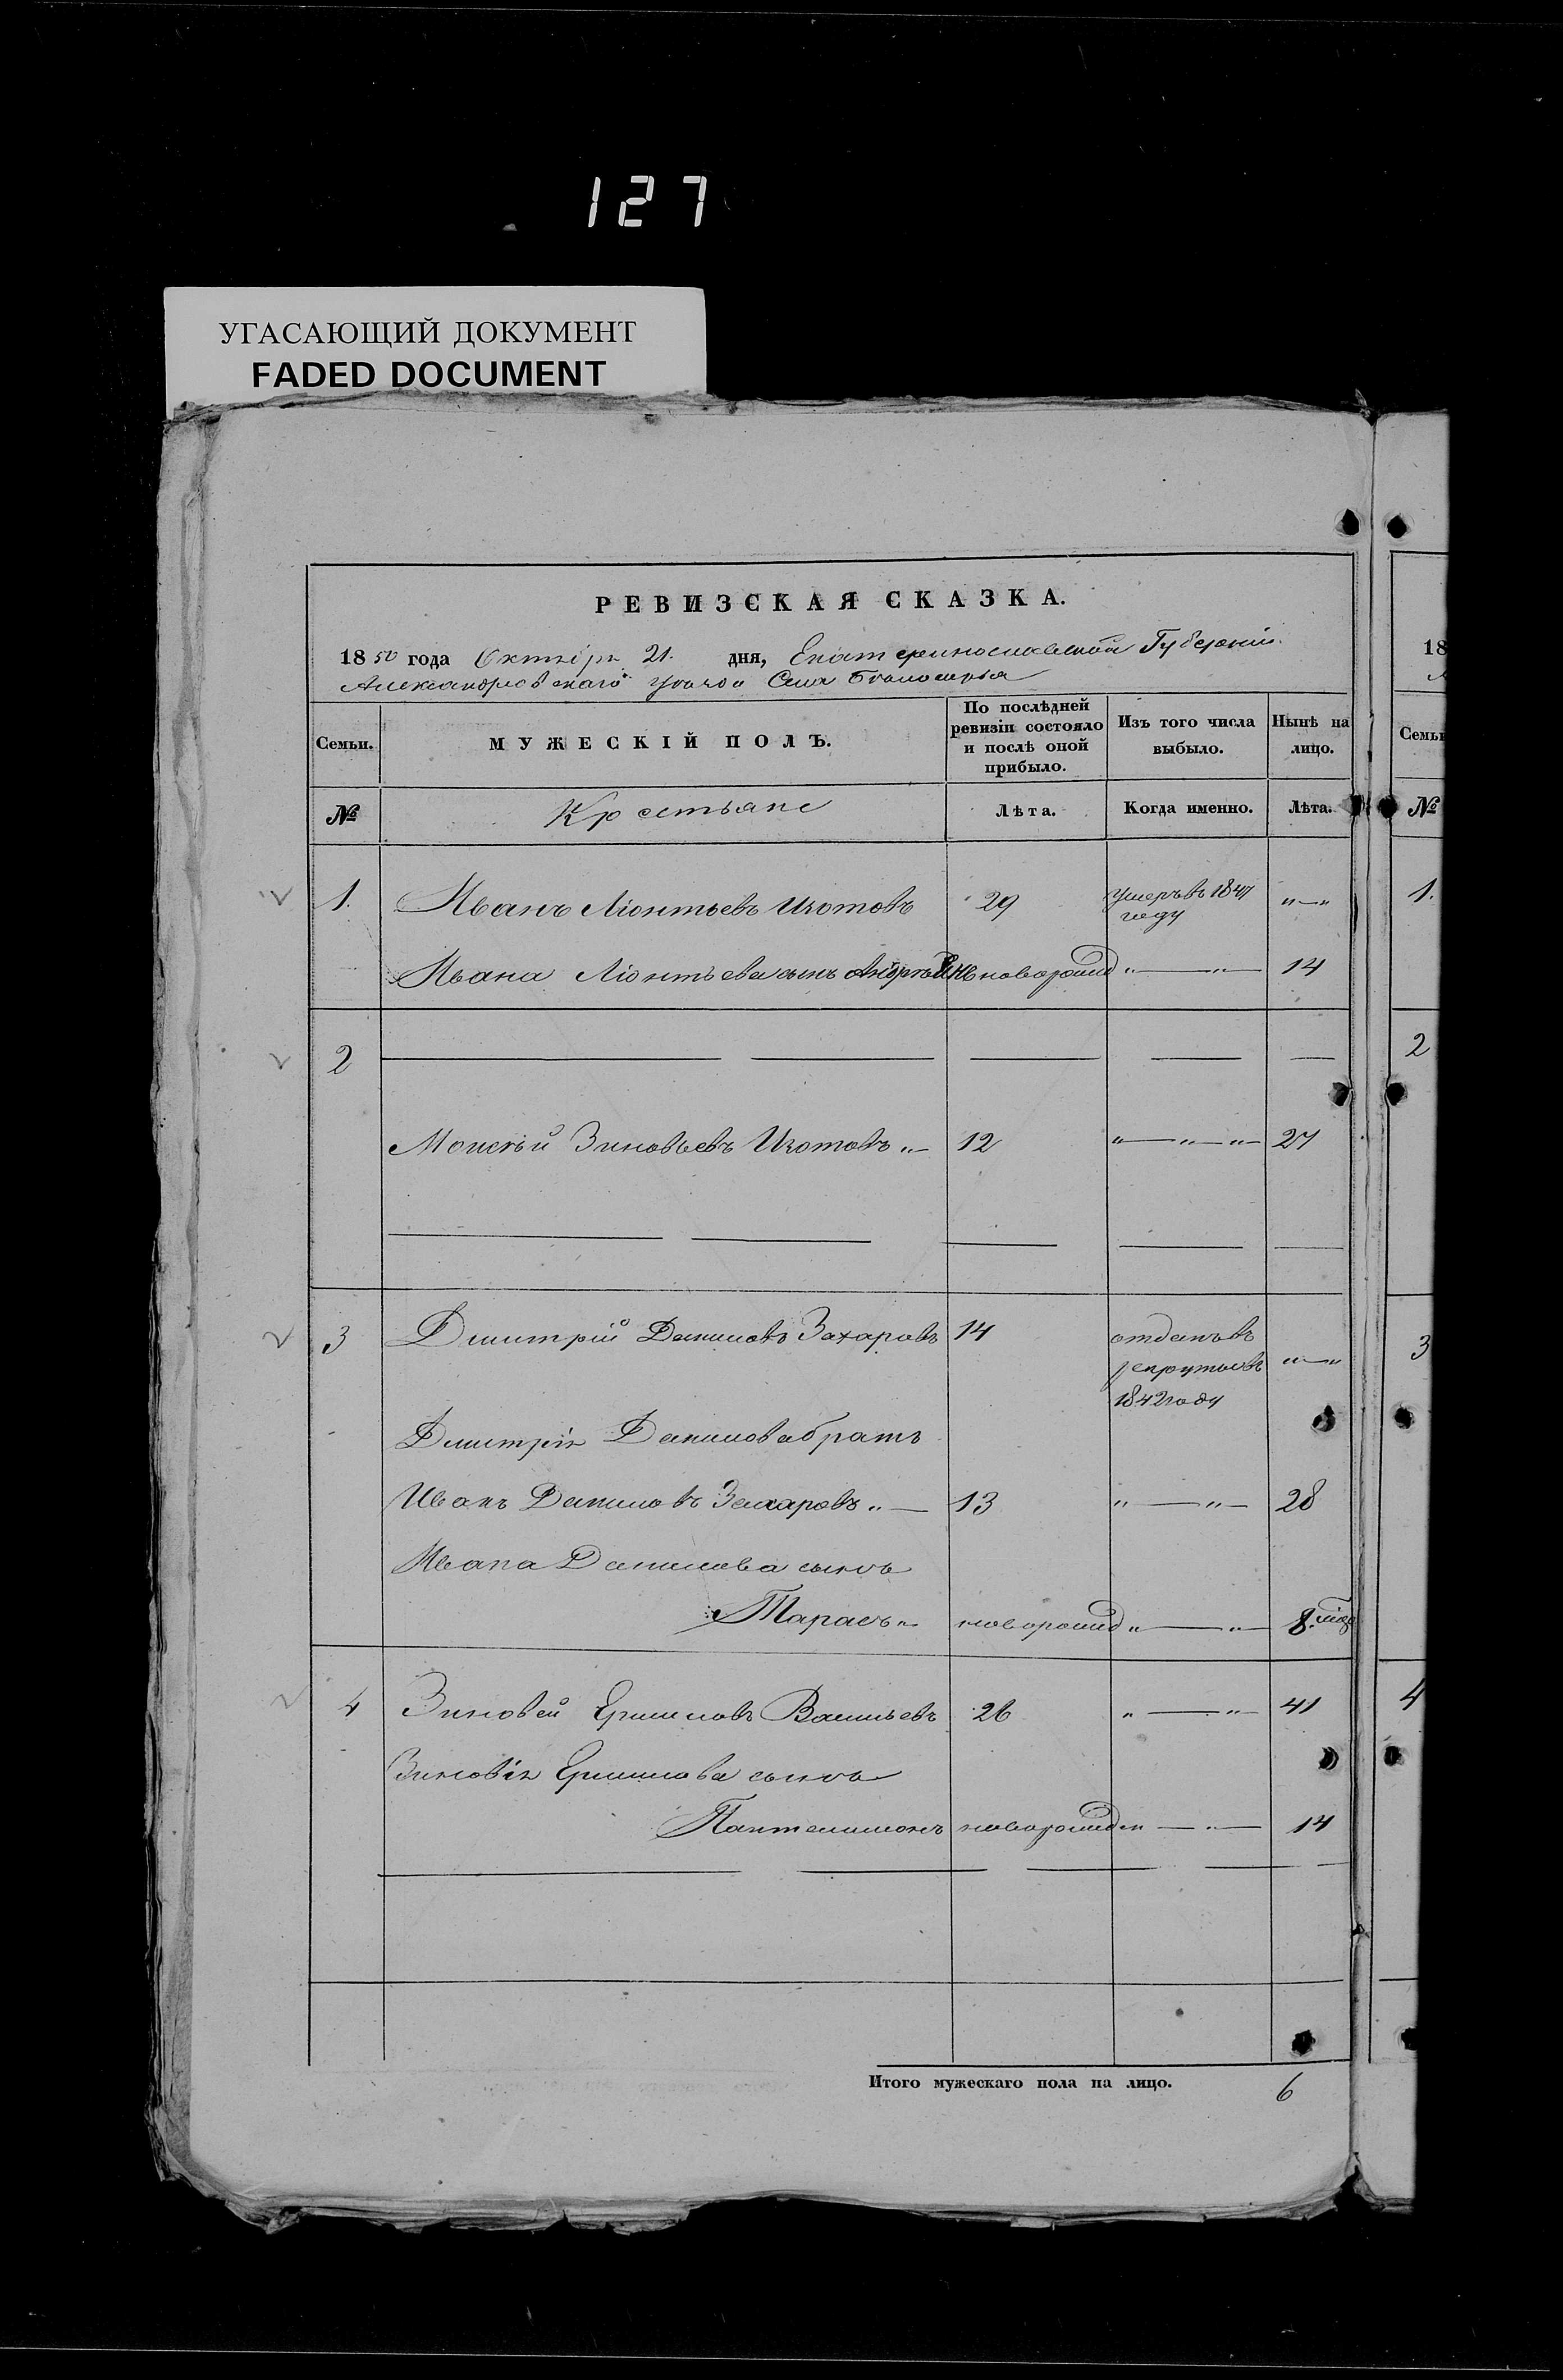 127
УГАСАЮЩИЙ ДОКУМЕНТ
FADED DOCUMENT
РЕВИЗСКАЯ СКАЗКА.
1850 года Октября 21. дня, Екатеринославской Губерніи
Александровскаго уѣзда Села
Семьи. МУЖЕСКІЙ ПОЛЪ. По послѣдней ревизіи состояло и послѣ оной прибыло. Изъ того числа выбыло. Нынѣ на лицо.
№ Крестьяне Лѣта. Когда именно. Лѣта.
1. Иванъ Ліонтьевъ Изотовъ 29 умеръ въ 1847 году „—„
Ивана Ліонтьева сынъ новорожд „—„ 14
2
Моисѣй Зиновьевъ Изотовъ „— 12 „—„—„— 27
3 Дмитрій Даниловъ Захаровъ 14 отданъ въ рекруты въ 1842 году „—„
Дмитрія Данилова братъ
Иванъ Даниловъ Захаровъ „— 13 „—„— 28
Ивана Данилова сынъ
Тарасъ „ новорожд „—„— 8.
4 Зиновей Ермиловъ Васильевъ 26 „—„— 41
Зиновія Ермилова сынъ
Пантелимонъ новорожден —„— 14
Итого мужескаго пола на лицо. 6
18
Семьи
№
1.
2
3
4